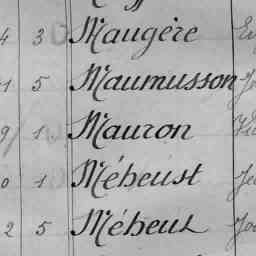 4 3 Maugère
1 5 Maumusson
9 1 Mauron
0 1 Méheust
2 5 Méheut